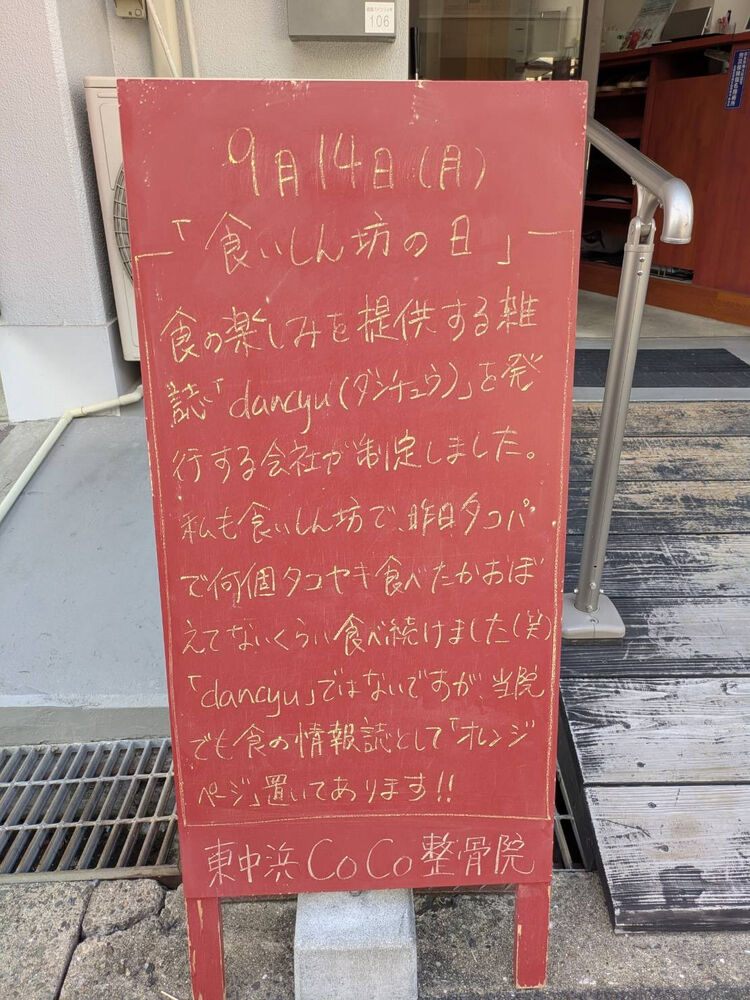 106
9月14日(月)
「食いしん坊の日」
食の楽しみを提供する雑
誌「dancyu(ダンチュウ)」を発
行する会社が制定しました。
私も食いしん坊で、昨日タコパ
で何個タコヤキ食べたかおぼ
えてないくらい食べ続けました(笑)
「dancyu」ではないですが、当院
でも食の情報誌として「オレンジ
ページ」置いてあります!!
東中浜CoCo整骨院